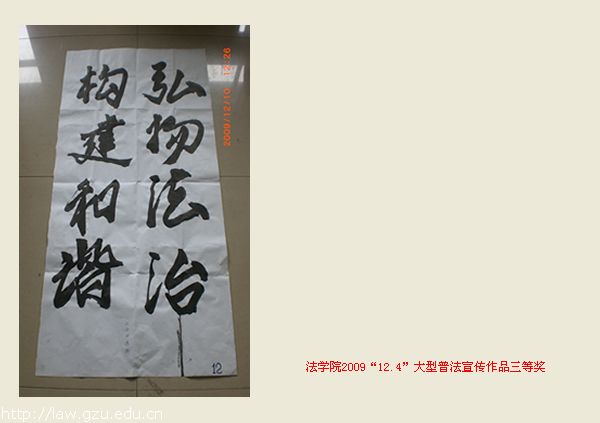 弘扬法治
构建和谐
12
2009/12/10 12:26
法学院2009“12.4”大型普法宣传作品三等奖
http://law.gzu.edu.cn